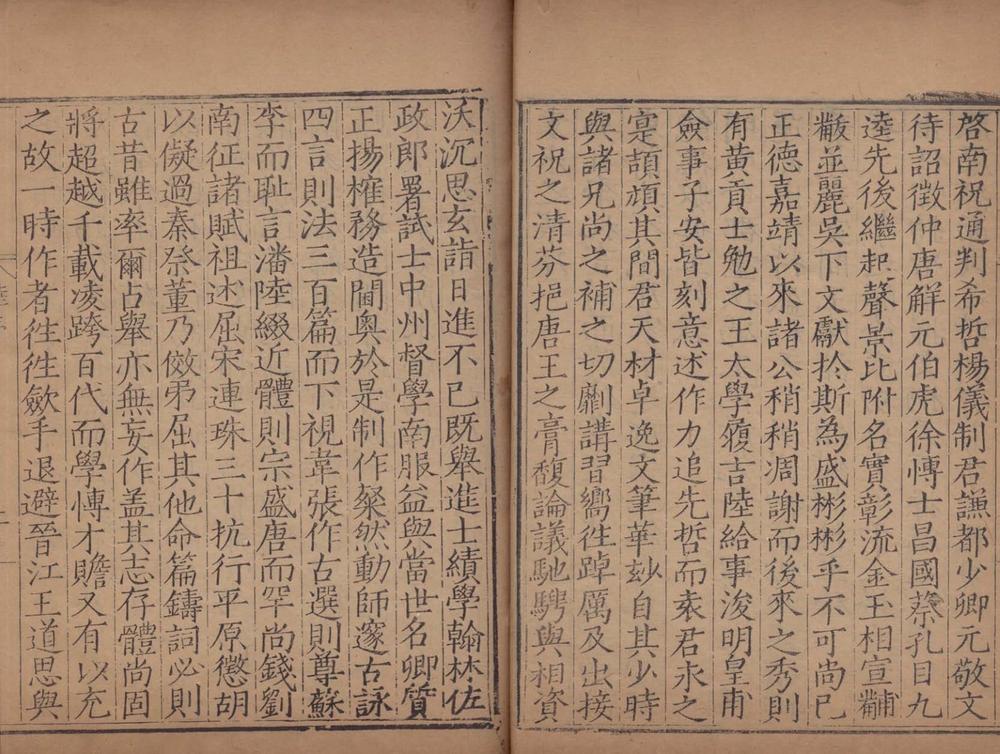 啓南祝通判希哲楊儀制君謙都少卿元敬文
待詔徵仲唐解元伯虎徐愽士昌國蔡孔目九
逵先後繼起聲景比附名實彰流金玉相宣黼
黻並麗吳下文獻扵斯為盛彬彬乎不可尚已
正德嘉靖以來諸公稍稍凋謝而後來之秀則
有黃貢士勉之王太學履吉陸給事浚明皇甫
僉事子安皆刻意述作力追先哲而袁君永之
寔頡頏其間君天材卓逸文筆華玅自其少時
與諸兄尚之補之切劘講習嚮徃踔厲及出接
文祝之清芬挹唐王之膏馥論議馳騁與相資
沃沉思玄詣日進不已既舉進士績學翰林佐
政郎署試士中州督學南服益與當世名卿質
正揚榷務造閫奧於是制作粲然動師邃古詠
四言則法三百篇而下視韋張作古選則尊蘇
李而恥言潘陸綴近體則宗盛唐而罕尚錢劉
南征諸賦祖述屈宋連珠三十抗行平原懲胡
以儗過秦祭董乃傚弔屈其他命篇鑄詞必則
古昔雖率爾占舉亦無妄作盖其志存體尚固
將超越千載凌跨百代而學愽才贍又有以充
之故一時作者徃徃歛手退避晉江王道思與